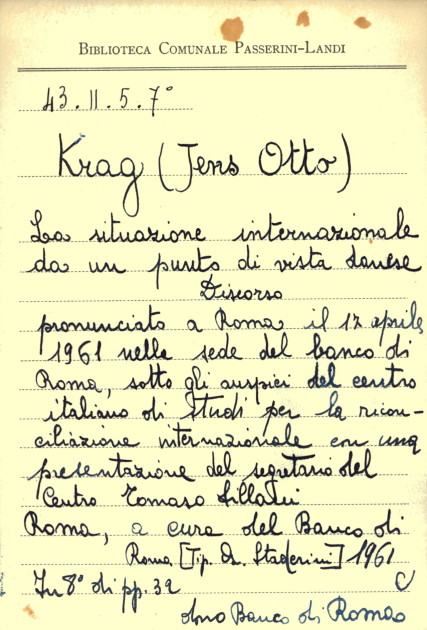 BIBLIOTECA COMUNALE PASSERINI-LANDI
43.II.5.7°
Krag (Jens Otto)
La situazione internazionale
da un punto di vista danese
Discorso
pronunciato a Roma il 12 aprile
1961 nella sede del banco di
Roma, sotto gli auspici del centro
italiano di studi per la ricon-
ciliazione internazionale con una
presentazione del segretario del
Centro Tomaso Sillani
Roma, a cura del Banco di
Roma [Tip. Staderini] 1961
In 8° di pp. 32
dono Banco di Roma